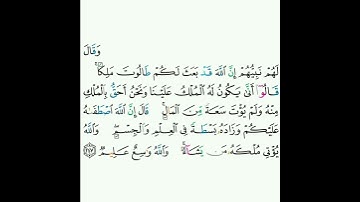 وَقَالَ
لَهُمْ نَبِيُّهُمْ إِنَّ ٱللَّهَ قَدْ بَعَثَ لَكُمْ طَالُوتَ مَلِكًاۚ
قَالُوٓا۟ أَنَّىٰ يَكُونُ لَهُ ٱلْمُلْكُ عَلَيْنَا وَنَحْنُ أَحَقُّ بِٱلْمُلْكِ
مِنْهُ وَلَمْ يُؤْتَ سَعَةً مِّنَ ٱلْمَالِۚ قَالَ إِنَّ ٱللَّهَ ٱصْطَفَىٰهُ
عَلَيْكُمْ وَزَادَهُۥ بَسْطَةً فِى ٱلْعِلْمِ وَٱلْجِسْمِۖ وَٱللَّهُ
يُؤْتِى مُلْكَهُۥ مَن يَشَآءُۚ وَٱللَّهُ وَٰسِعٌ عَلِيمٌ ٢٤٧